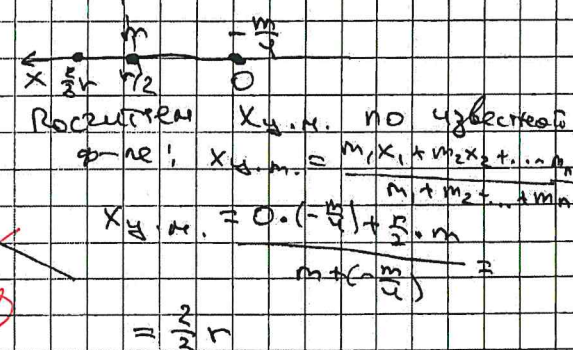 m - m/4
x 2/3 r r/2 0
Посчитаем x ц.м. по известной
ф-ле: x ц.м. = (m₁x₁ + m₂x₂ + ...) / (m₁ + m₂ + ... + mₙ)
x ц.м. = (0·(-m/4) + r/2·m) / (m + (-m/4)) =
= 2/3 r